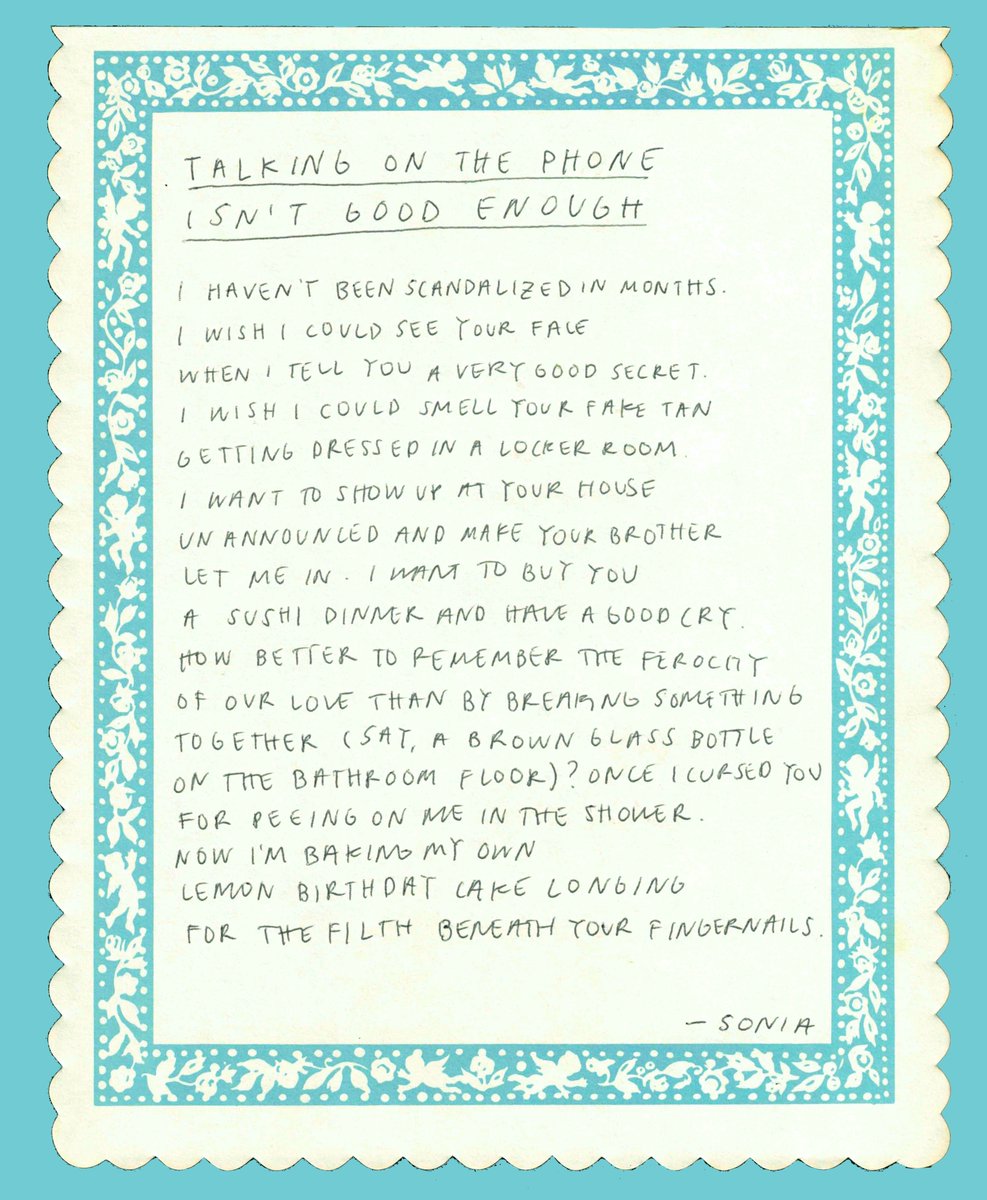 TALKING ON THE PHONE
ISN'T GOOD ENOUGH
I HAVEN'T BEEN SCANDALIZED IN MONTHS.
I WISH I COULD SEE YOUR FACE
WHEN I TELL YOU A VERY GOOD SECRET.
I WISH I COULD SMELL YOUR FAKE TAN
GETTING DRESSED IN A LOCKER ROOM.
I WANT TO SHOW UP AT YOUR HOUSE
UNANNOUNCED AND MAKE YOUR BROTHER
LET ME IN. I WANT TO BUY YOU
A SUSHI DINNER AND HAVE A GOOD CRY.
HOW BETTER TO REMEMBER THE FEROCITY
OF OUR LOVE THAN BY BREAKING SOMETHING
TOGETHER (SAY, A BROWN GLASS BOTTLE
ON THE BATHROOM FLOOR)? ONCE I CURSED YOU
FOR PEEING ON ME IN THE SHOWER.
NOW I'M BAKING MY OWN
LEMON BIRTHDAY CAKE LONGING
FOR THE FILTH BENEATH YOUR FINGERNAILS.
— SONIA